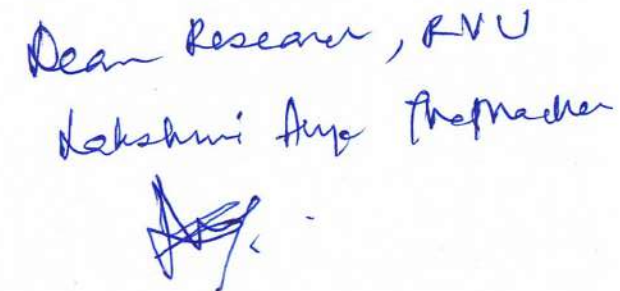 Dean Research, RVU
Lakshmi Arya Thathachar